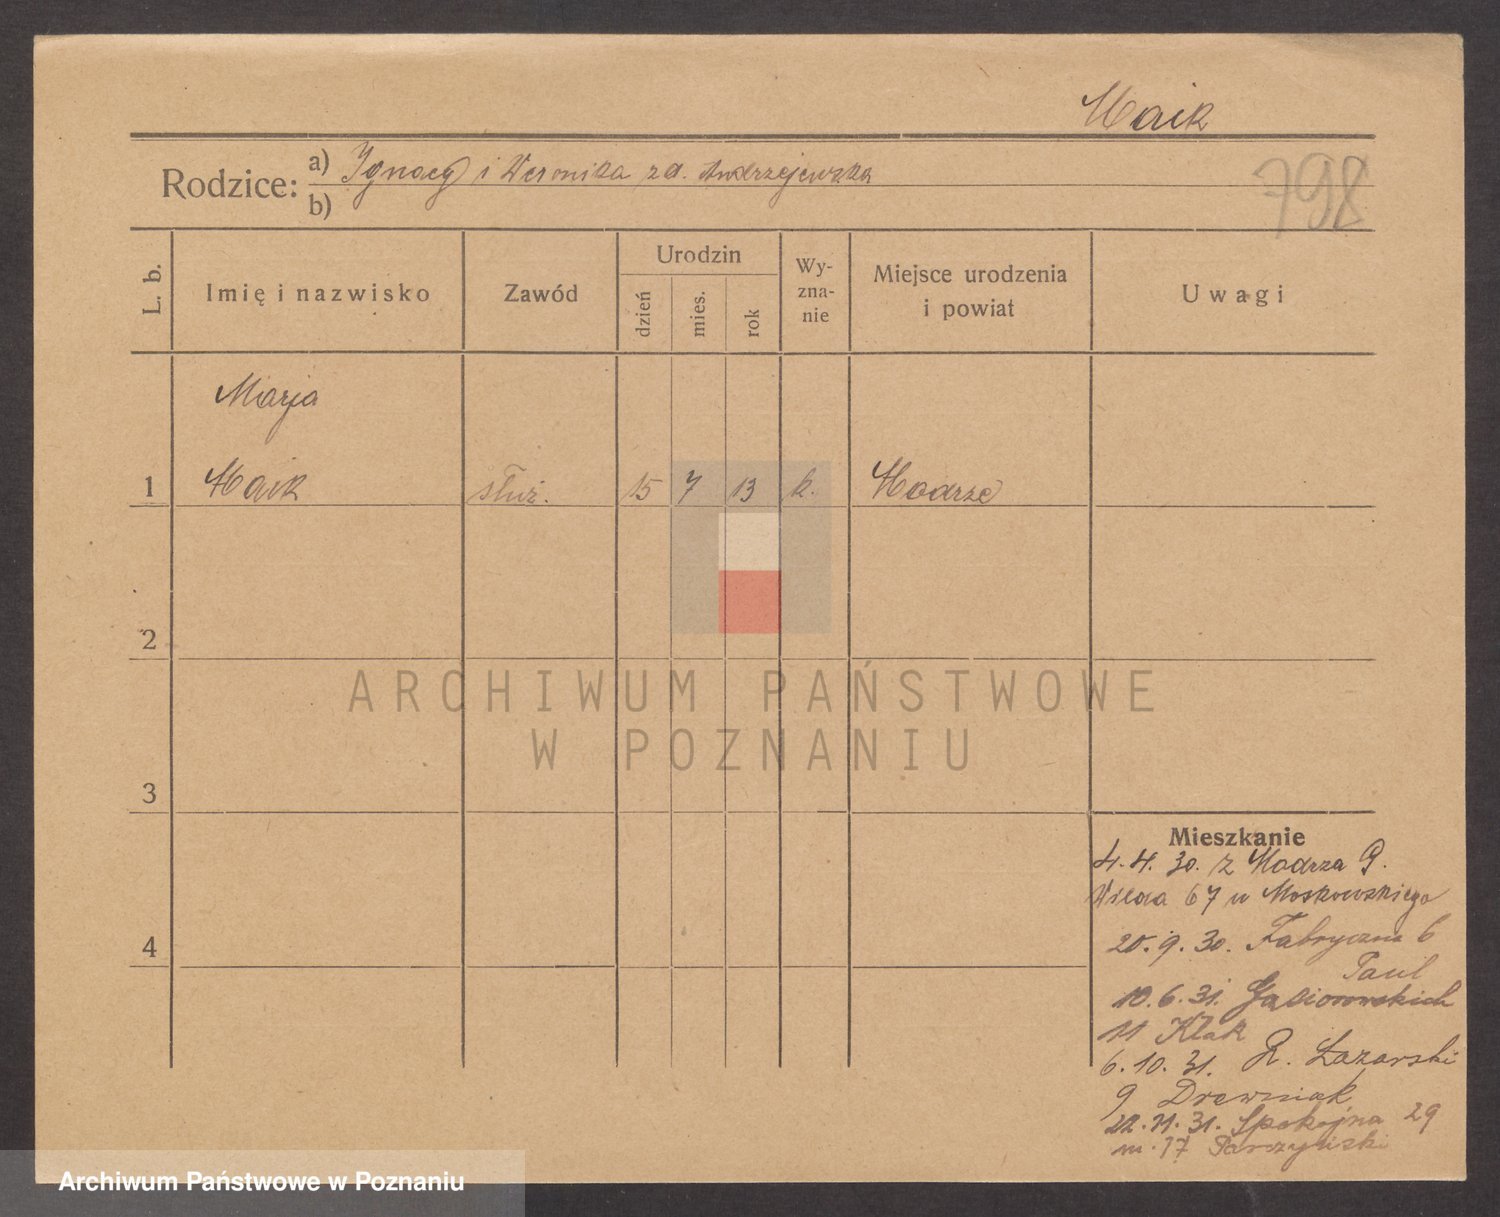 Maik
Rodzice:
a) Ignacy i Weronika zd. Andrzejewska
b)
798
L. b.
Imię i nazwisko
Zawód
Urodzin
dzień
mies.
rok
Wy-
zna-
nie
Miejsce urodzenia
i powiat
Uwagi
Marja
1 Maik służ. 15 7 13 k. Modrze
2
3
4
ARCHIWUM PAŃSTWOWE
W POZNANIU
Mieszkanie
4.4.30. z Modrza G.
Wilda 67 u Moskowskiego
20.9.30. Fabryczna 6
Paul
10.6.31. Gąsiorowskich
11 Kłak
6.10.31. R. Łazarski
9 Drewniak
22.11.31. Spokojna 29
m. 17 Parzyński
Archiwum Państwowe w Poznaniu